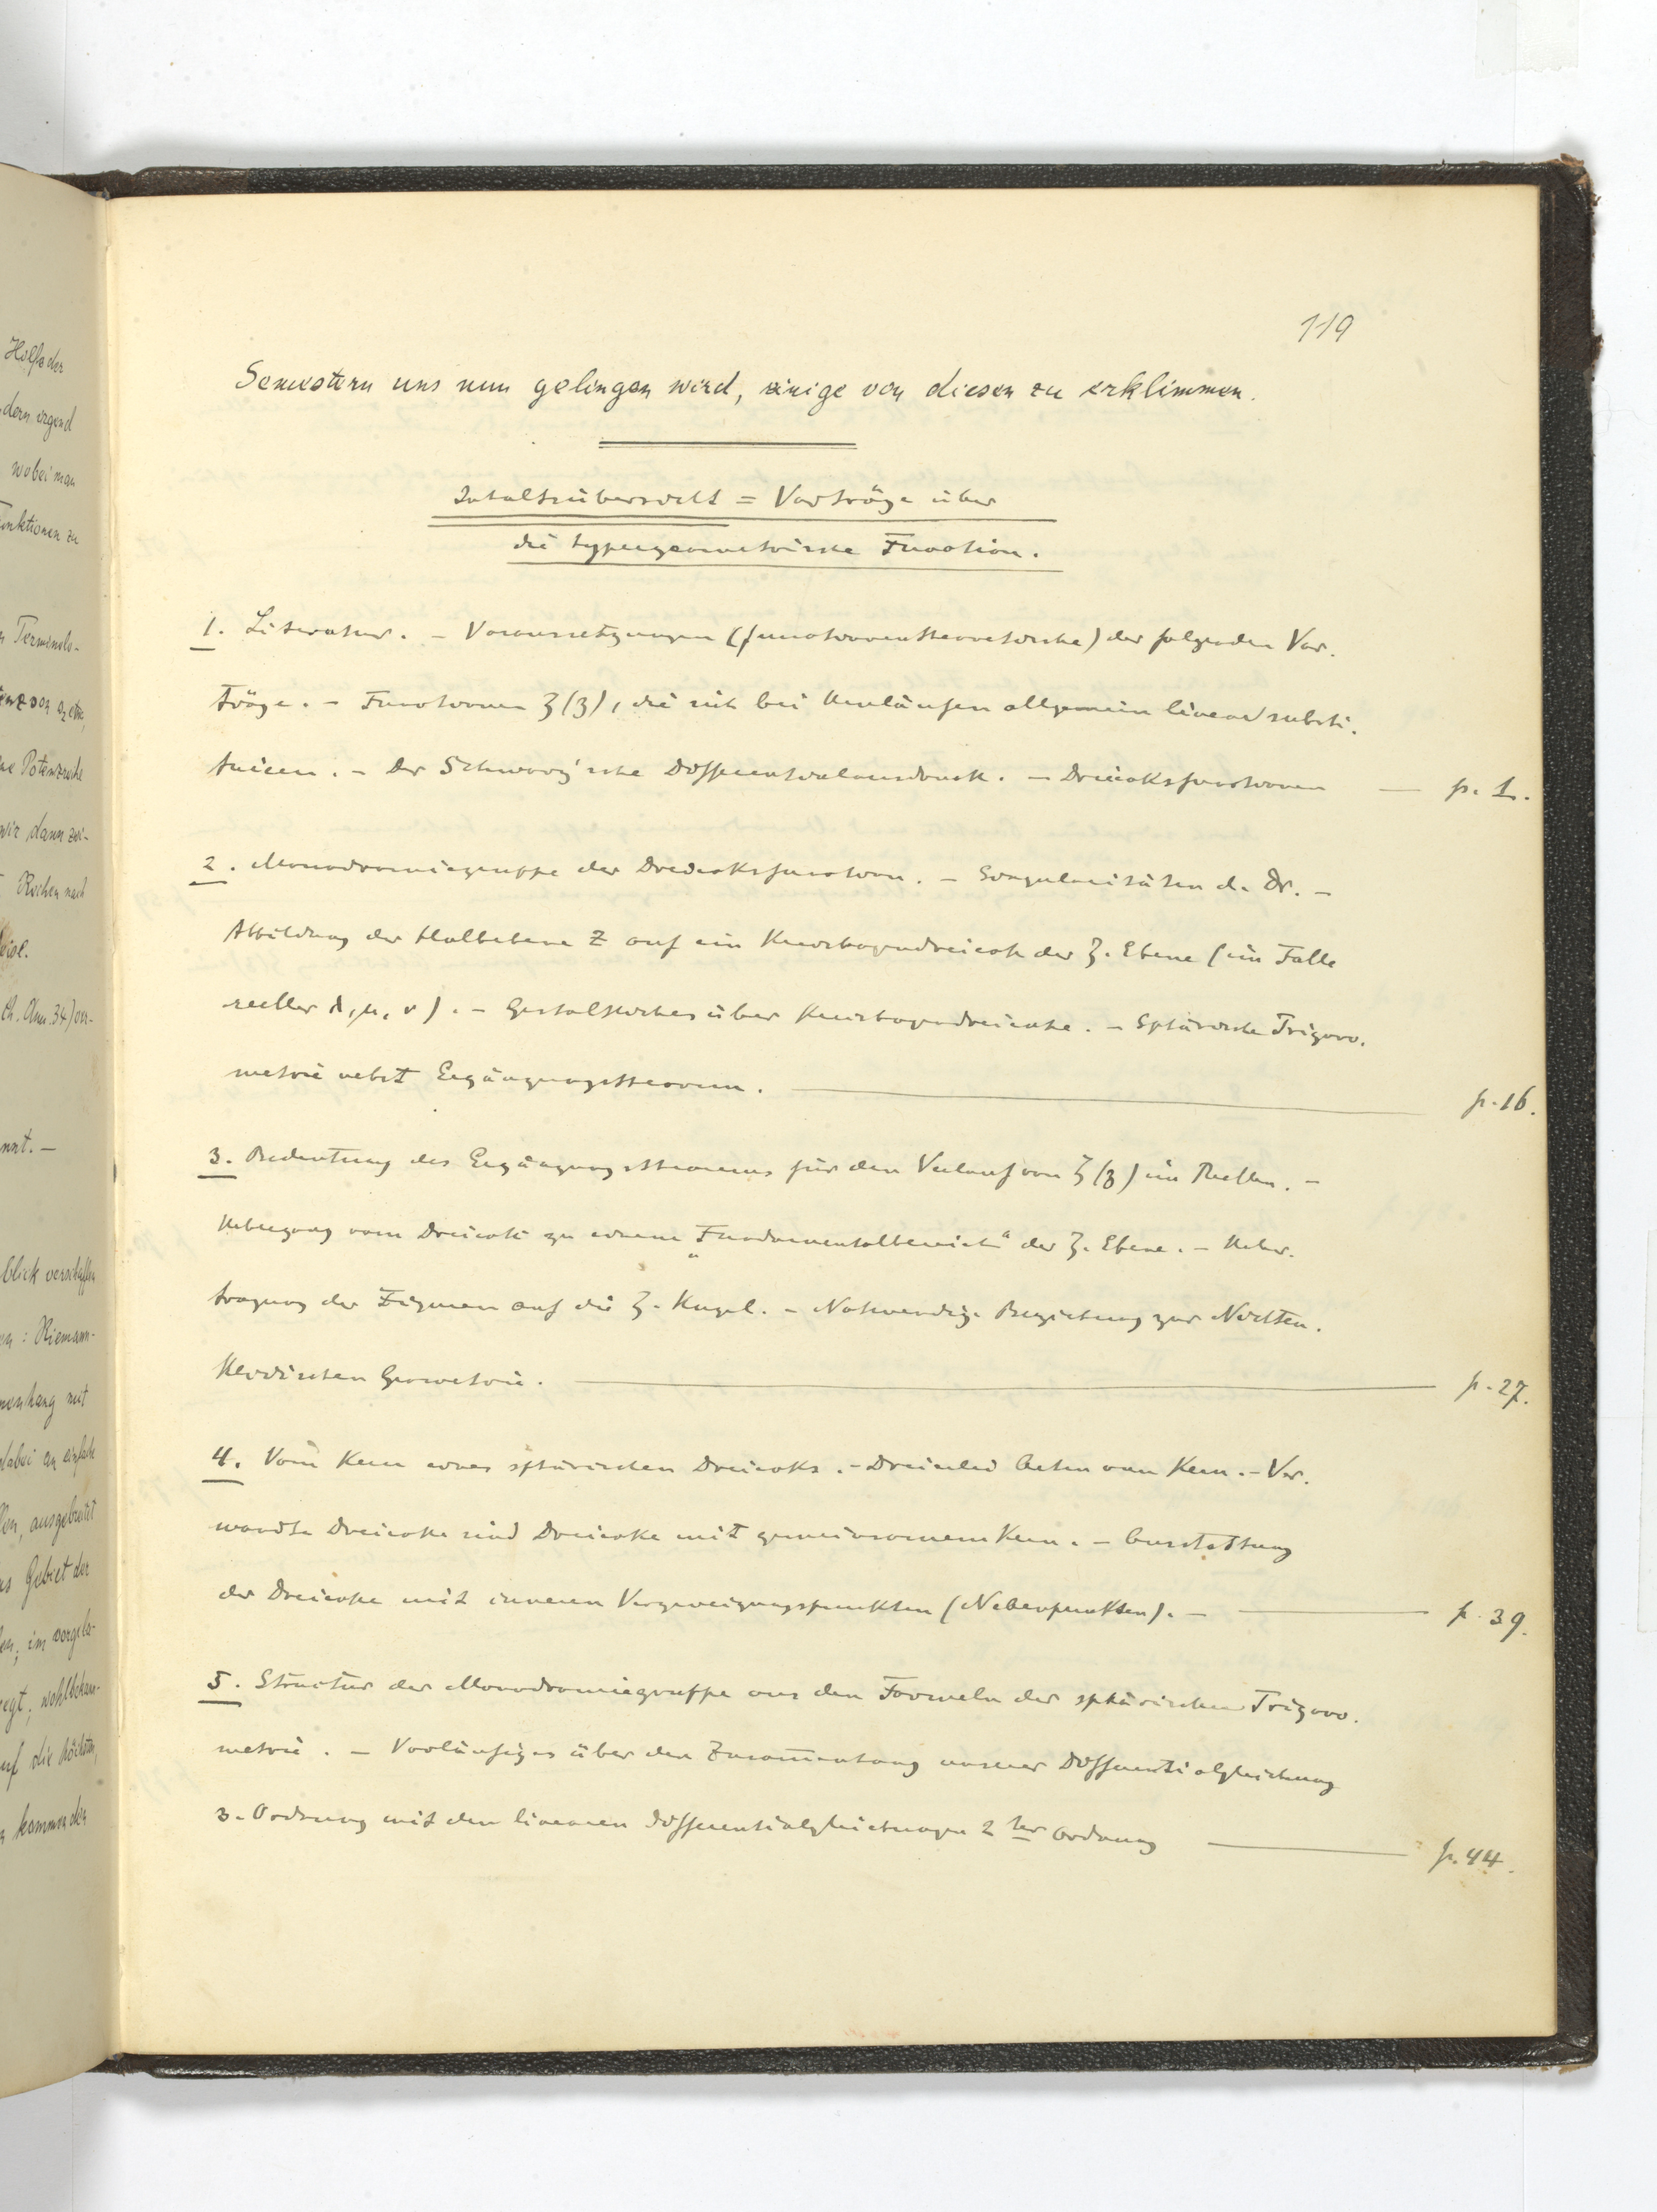 119
Semestern uns nun gelingen wird, einige von diesen zu erklimmen.
Inhaltsübersicht = Vorträge über
die hypergeometrische Function.
1. Literatur. – Voraussetzungen (functionentheoretische) der folgenden Vor-
träge. – Functionen ζ(z), die sich bei Umläufen allgemein linear substi-
tuieren. – Der Schwarz'sche Differentialausdruck. – Dreiecksfunctionen — p. 1.
2. Monodromiegruppe der Dreiecksfunction. – Singularitäten d. Dr. –
Abbildung der Halbebene Z auf ein Kreisbogendreieck der ζ-Ebene (im Falle
reeller λ, μ, ν). – Gestaltliches über Kreisbogendreiecke. – Sphärische Trigono-
metrie nebst Ergänzungstheorem. — p. 16.
3. Bedeutung des Ergänzungstheorems für den Verlauf von ζ(z) im Reellen. –
Uebergang vom Dreieck zu einem „Fundamentalbereich“ der ζ-Ebene. – Ueber-
tragung der Figuren auf die ζ-Kugel. – Notwendige Beziehung zur Nichteu-
klidischen Geometrie. — p. 27.
4. Vom Kern eines sphärischen Dreiecks. – Dreierlei Arten von Kern. – Ver-
wandte Dreiecke sind Dreiecke mit gemeinsamem Kern. – Ausstattung
der Dreiecke mit inneren Verzweigungspunkten (Nebenpunkten). – — p. 39.
5. Structur der Monodromiegruppe aus den Formeln der sphärischen Trigono-
metrie. – Vorläufiges über den Zusammenhang unserer Differentialgleichung
3. Ordnung mit den linearen Differentialgleichungen 2ter Ordnung — p. 44.
Hülfe der
wobei man
Functionen zu
Potenzreihe
wir dann zwei-
nach
Ann. 34)
nnt. –
blick verschaffen
: Riemann-
mit
dabei an einfache
ausgebreitet
Gebiet der
im vorgele-
wohlbekann-
auf die höchsten
kommenden